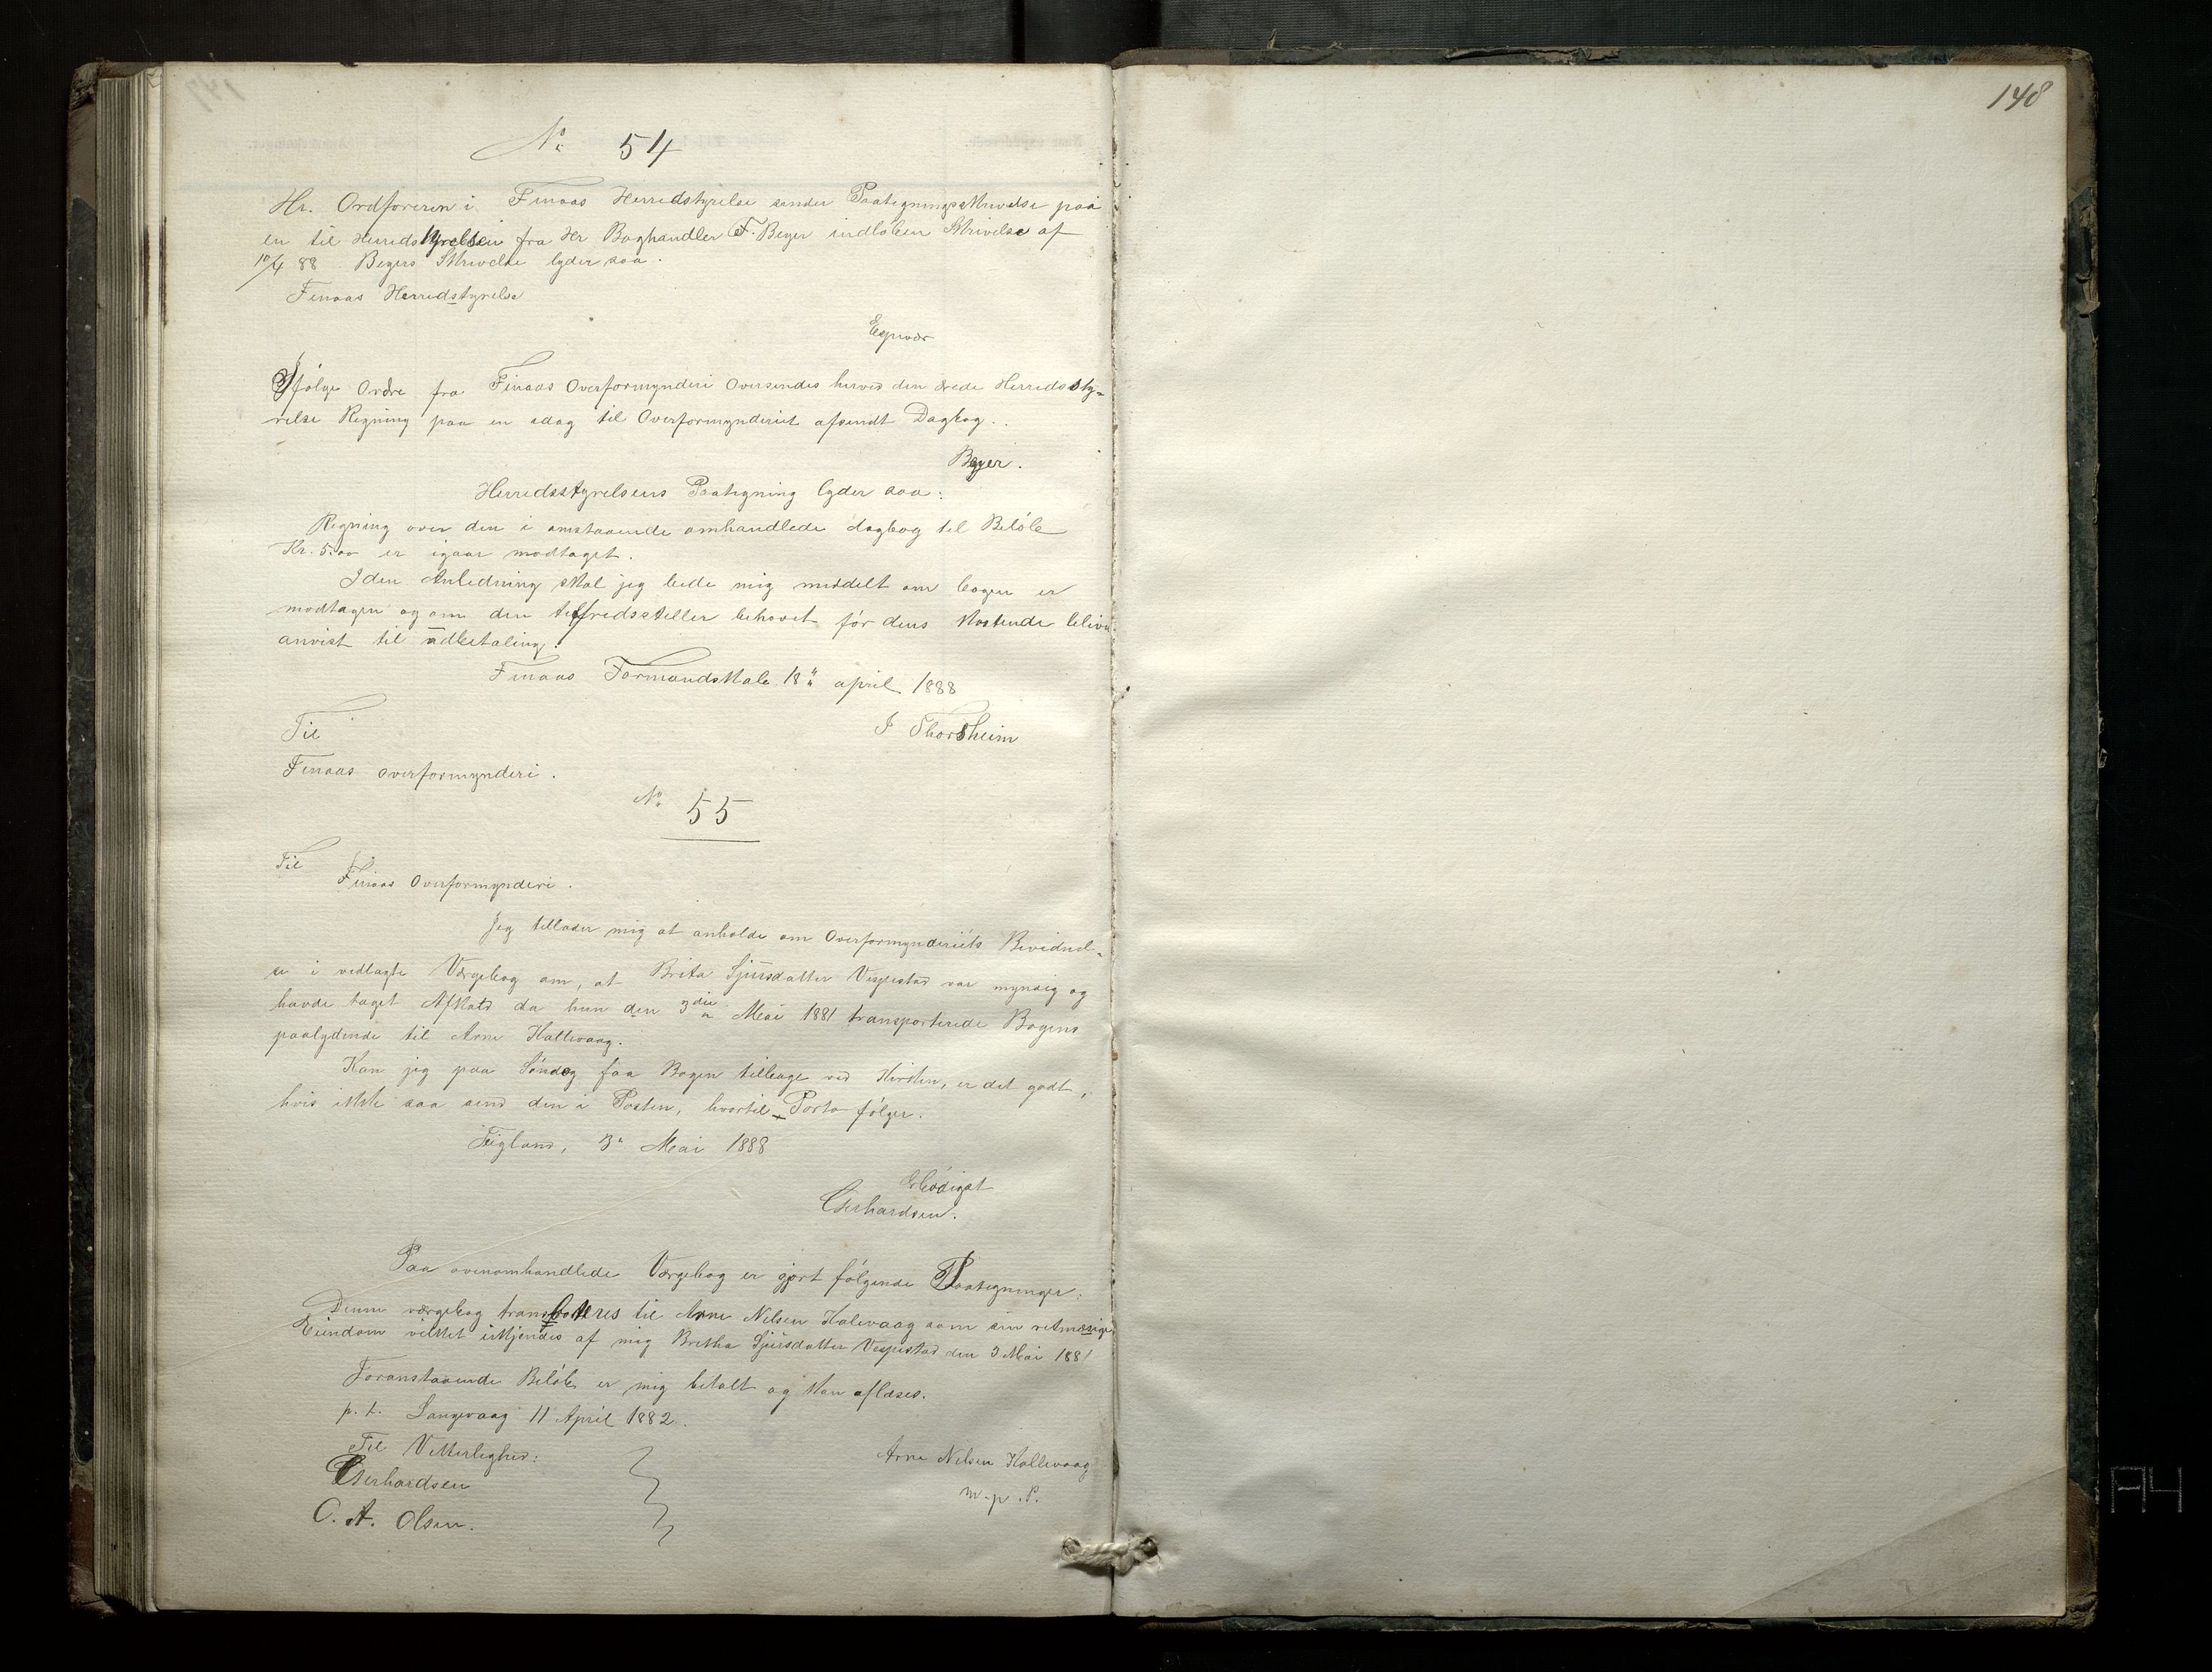 148
No 54
Hr. Ordføreren i Finaas Herredstyrelse sender Paategningsskrivelse paa
en til Herredstyrelsen fra Hr Boghandler F. Beyer indløben Skrivelse af
10/4 88 Beyers Skrivelse lyder saa.
Finaas Herredstyrelse
Espevær
Ifølge Ordre fra Finaas Overformynderi oversendes herved den ærede Herredssty-
relse Regning paa en idag til Overformynderiet afsendt Dagbog.
Beyer.
Herredsstyrelsens Paategning lyder saa:
Regning over den i omstaaende omhandlede dagbog til Beløb
Kr. 5.00 er igaar modtaget.
I den Anledning skal jeg bede mig meddelt om bogen er
modtagen og om den tilfredsstiller behovet før dens Kostende blive
anvist til udbetaling.
Finaas Formandskab 18 april 1888
J Thorsheim
Til
Finaas overformynderi.
No 55
Til
Finaas Overformynderi.
Jeg tillader mig at anholde om Overformynderiets Bevidnel-
se i vedlagte Værgebog om, at Brita Sjursdatter Vespestad var myndig og
havde taget Afkald da hun den 3die Mai 1881 transporterede Bogens
paalydende til Arne Hallevaag.
Kan jeg paa Søndag faa Bogen tilbage ved Kirken, er det godt,
hvis ikke saa send den i Posten, hvortil Porto følger.
Teigland, 3 Mai 1888
Erbødigst
Gerhardsen.
Paa ovenomhandlede Værgebog er gjort følgende Paategninger:
Denne værgebog transporteres til Arne Nilsen Halevaag som sin retmæsige
Eiendom vilket itkjendes af mig Bretha Sjursdatter Vespestad den 3 Mai 1881
Foranstaaende Beløb er mig betalt og kan aflæses.
p. t. Langevaag 11 April 1882.
Til Vitterlighed:
Gerhardsen
O. A. Olsen.
Arne Nilsen Hallevaag
m. p. P.
A4